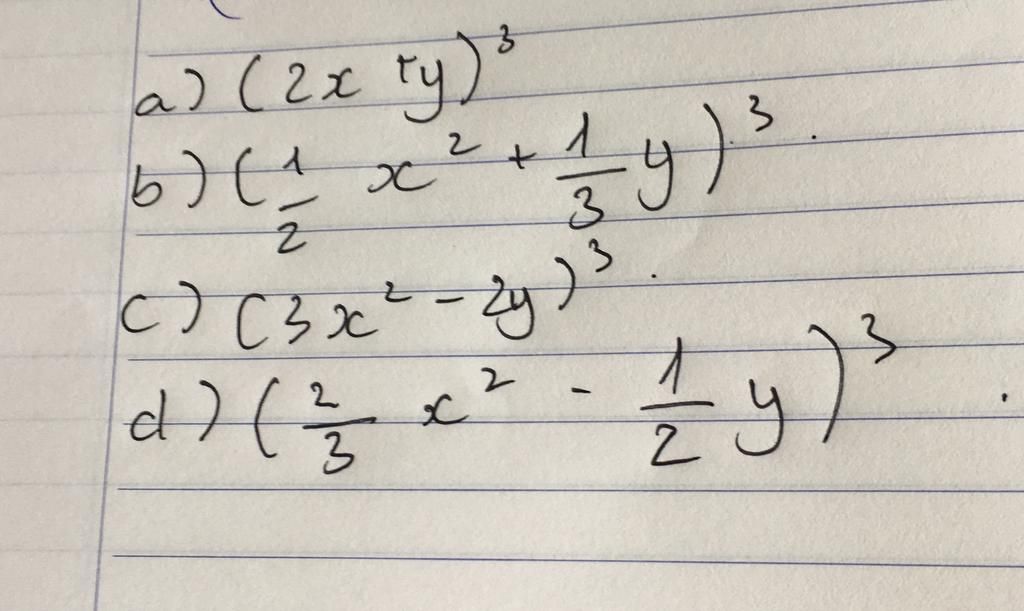 a) (2x + y)³
b) (1/2 x² + 1/3 y)³.
c) (3x² - 2y)³.
d) (2/3 x² - 1/2 y)³.